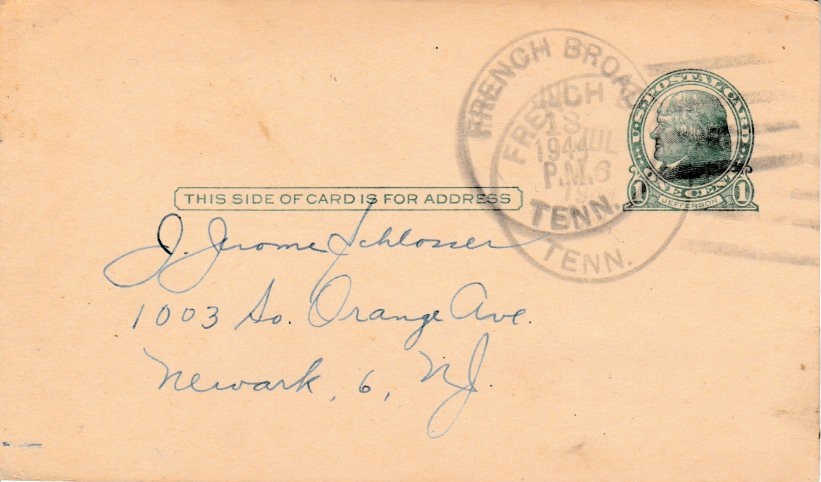 FRENCH BROAD
FRENCH
18
JUL
1944
P.M. 6
TENN.
TENN.
U.S. POSTAL CARD
ONE CENT
1 1
JEFFERSON
THIS SIDE OF CARD IS FOR ADDRESS
J. Jerome Schlosser
1003 So. Orange Ave.
Newark, 6, NJ.